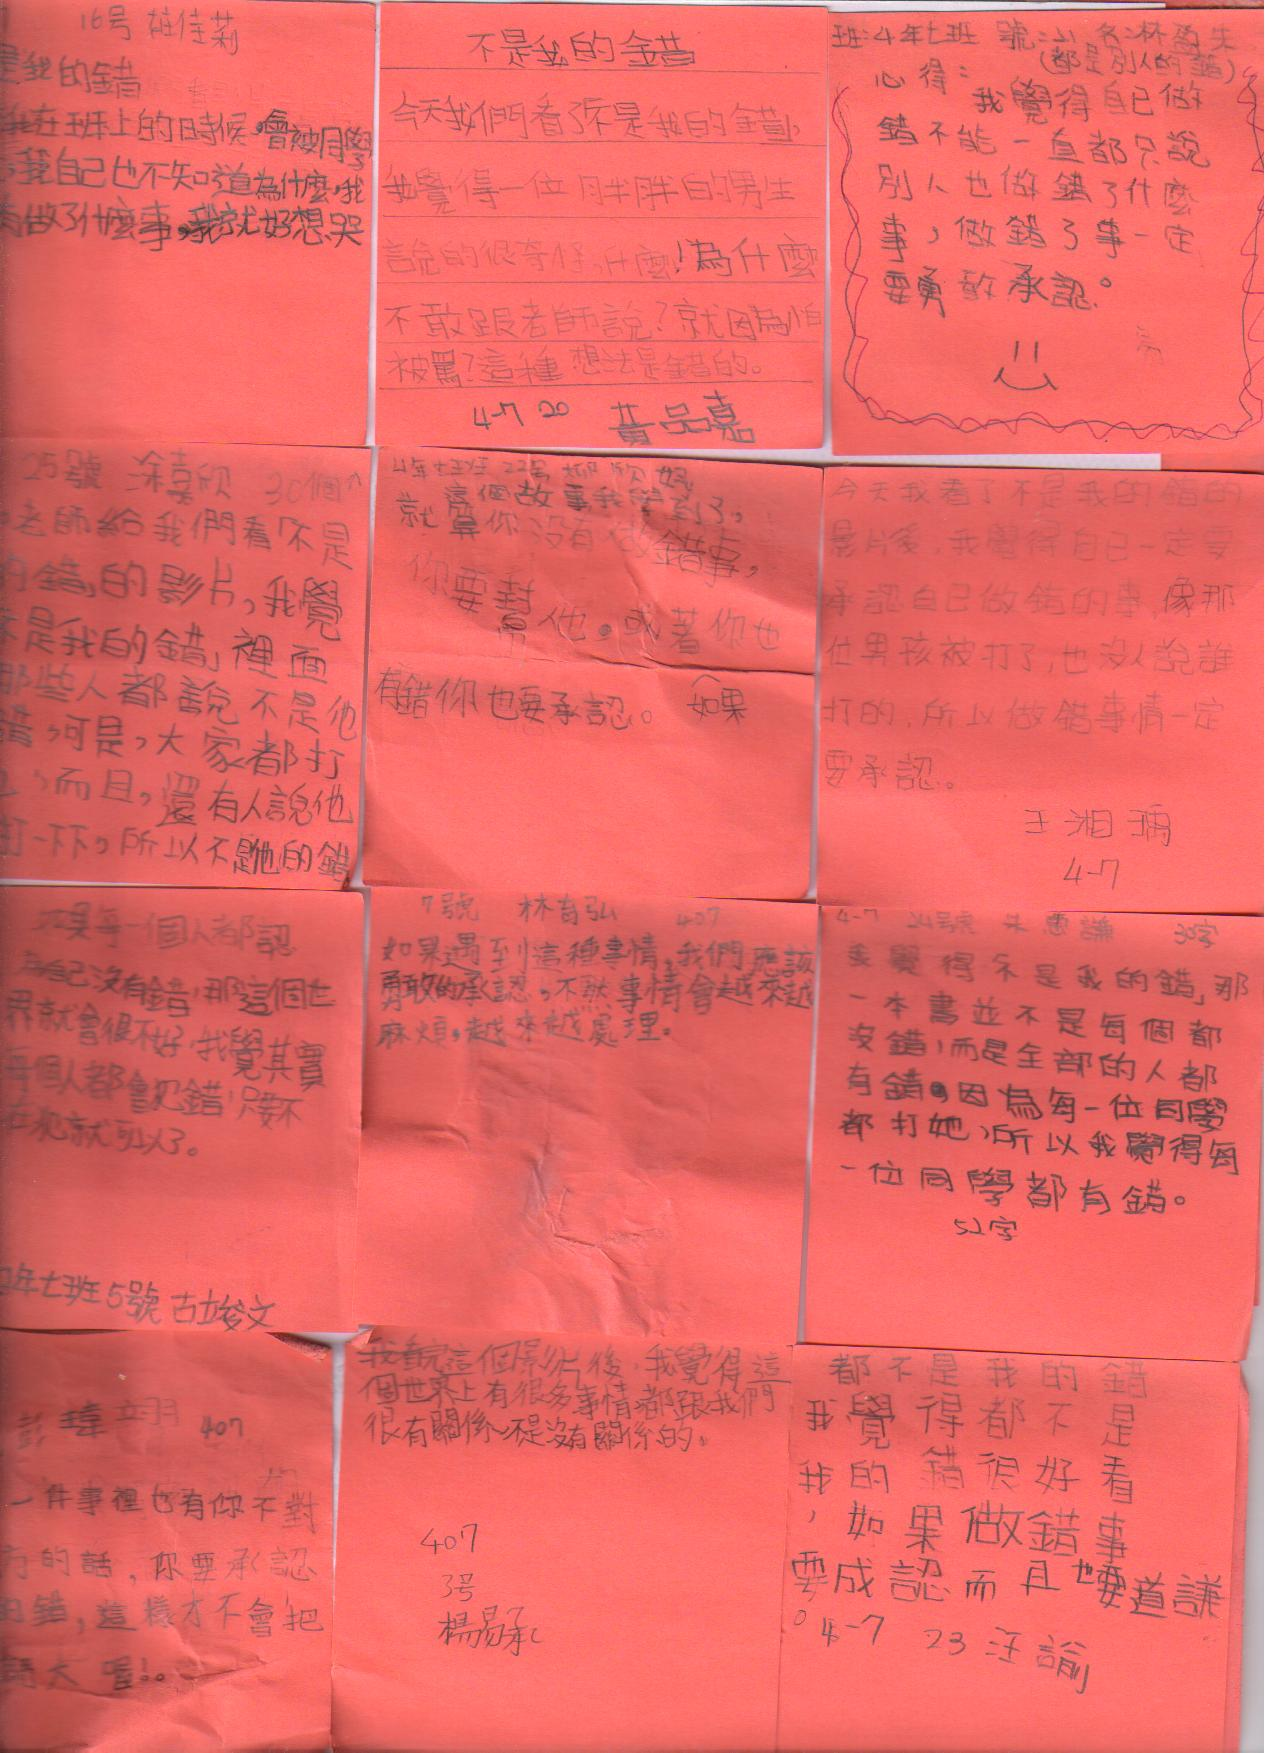 16号 莊佳莉
是我的錯
在班上的時候,會被同學
我自己也不知道為什麼,我
做了什麼事,我就好想哭
不是我的錯
今天我們看了不是我的錯,
我覺得一位胖胖的男生
說的很奇怪,什麼!為什麼
不敢跟老師說?就因為怕
被罵?這種想法是錯的。
4-7 20 黃品嘉
班:4年七班 號: 名:林
(都是別人的錯)
心得:我覺得自己做
錯不能一直都只說
別人也做錯了什麼
事,做錯了事一定
要勇敢承認。
25號 涂嘉欣 30個
老師給我們看「不是
的錯」的影片,我覺
是我的錯」裡面
那些人都說不是他
錯,可是,大家都打
,而且,還有人說他
打一下下,所以不是他的錯
4年七班 22号 柳欣妤
這個故事我學到了,
就算你沒有做錯事,
你要幫他。或著你也
有錯你也要承認。 如果
今天我看了不是我的錯的
影片後,我覺得自已一定要
承認自已做錯的事,像那
位男孩被打了,也沒人說誰
打的,所以做錯事情一定
要承認。
王湘瑀
4-7
每一個人都認
為自己沒有錯,那這個世
界就會很不好,我覺其實
每個人都會犯錯,只要不
在犯就可以了。
年七班5號 古竣文
7號 林育弘 407
如果遇到這種事情,我們應該
勇敢的承認,不然事情會越來越
麻煩,越來越處理。
4-7 24號 朱恩謙 30字
我覺得「不是我的錯」那
一本書並不是每個都
沒錯,而是全部的人都
有錯。因為每一位同學
都打她,所以我覺得每
一位同學都有錯。
52字
彭瑋翔 407
一件事裡也有你不對
方的話,你要承認
的錯,這樣才不會把
大喔!。
我看完這個影片後,我覺得這
個世界上有很多事情都跟我們
很有關係,不是沒有關係的。
407
3号
楊易承
都不是我的錯
我覺得都不是
我的錯很好看
,如果做錯事
要成認而且也要道謙
。4-7 23 汪諭